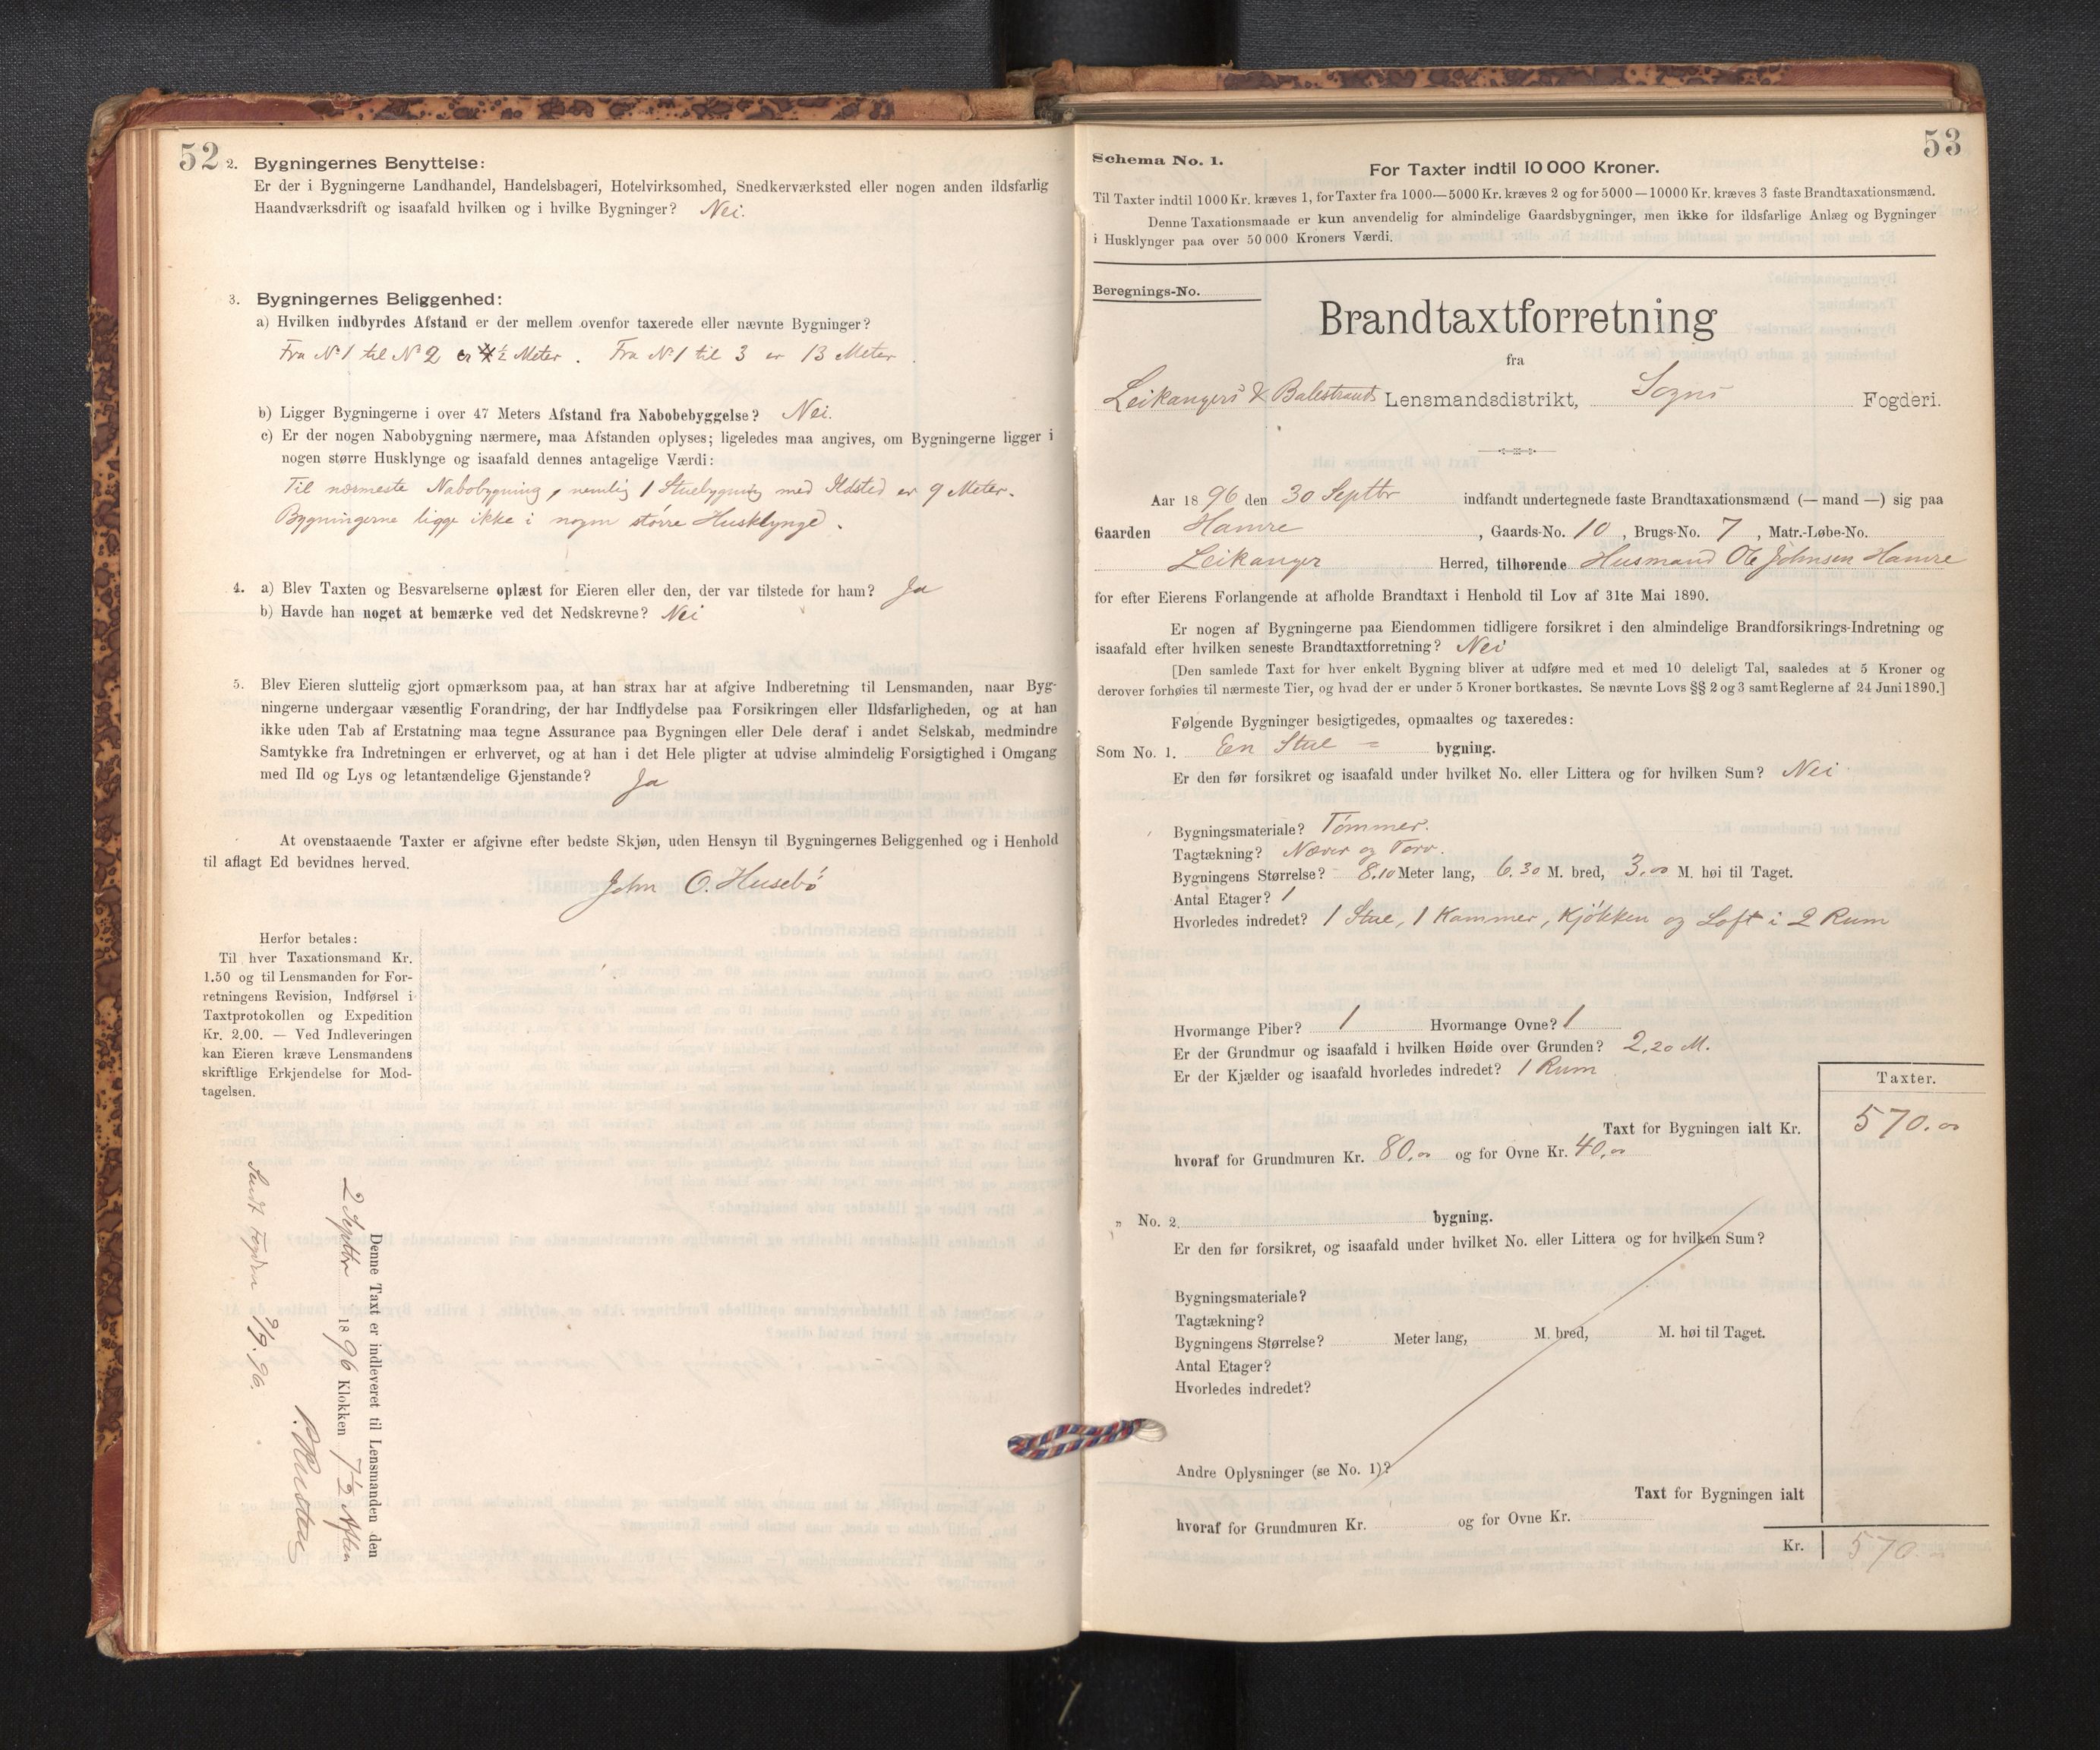 52
2. Bygningernes Benyttelse:
Er der i Bygningerne Landhandel, Handelsbageri, Hotelvirksomhed, Snedkerværksted eller nogen anden ildsfarlig
Haandværksdrift og isaafald hvilken og i hvilke Bygninger? Nei.
3. Bygningernes Beliggenhed:
a) Hvilken indbyrdes Afstand er der mellem ovenfor taxerede eller nævnte Bygninger?
Fra No 1 til No 2 er ½ Meter. Fra No 1 til 3 er 13 Meter
b) Ligger Bygningerne i over 47 Meters Afstand fra Nabobebyggelse? Nei.
c) Er der nogen Nabobygning nærmere, maa Afstanden oplyses; ligeledes maa angives, om Bygningerne ligger i
nogen større Husklynge og isaafald dennes antagelige Værdi:
Til nærmeste Nabobygning, nemlig 1 Stuebygning med Ildsted er 9 Meter.
Bygningerne ligge ikke i nogen større Husklynge.
4. a) Blev Taxten og Besvarelserne oplæst for Eieren eller den, der var tilstede for ham? Ja
b) Havde han noget at bemærke ved det Nedskrevne? Nei
5. Blev Eieren sluttelig gjort opmærksom paa, at han strax har at afgive Indberetning til Lensmanden, naar Byg-
ningerne undergaar væsentlig Forandring, der har Indflydelse paa Forsikringen eller Ildsfarligheden, og at han
ikke uden Tab af Erstatning maa tegne Assurance paa Bygningen eller Dele deraf i andet Selskab, medmindre
Samtykke fra Indretningen er erhvervet, og at han i det Hele pligter at udvise almindelig Forsigtighed i Omgang
med Ild og Lys og letantændelige Gjenstande? Ja
At ovenstaaende Taxter er afgivne efter bedste Skjøn, uden Hensyn til Bygningernes Beliggenhed og i Henhold
til aflagt Ed bevidnes herved.
John O. Husebö
Herfor betales:
Til hver Taxationsmand Kr.
1.50 og til Lensmanden for For-
retningens Revision, Indførsel i
Taxtprotokollen og Expedition
Kr. 2.00. — Ved Indleveringen
kan Eieren kræve Lensmandens
skriftlige Erkjendelse for Mod-
tagelsen.
Denne Taxt er indleveret til Lensmanden den
2 Septbr 1896 Klokken 7½ Aften
Sendt Fogden 9/9.96.
53
Schema No. 1.
For Taxter indtil 10 000 Kroner.
Til Taxter indtil 1000 Kr. kræves 1, for Taxter fra 1000—5000 Kr. kræves 2 og for 5000—10000 Kr. kræves 3 faste Brandtaxationsmænd.
Denne Taxationsmaade er kun anvendelig for almindelige Gaardsbygninger, men ikke for ildsfarlige Anlæg og Bygninger
i Husklynger paa over 50 000 Kroners Værdi.
Beregnings-No.
Brandtaxtforretning
fra
Leikangers & Balestrands Lensmandsdistrikt, Sogns Fogderi.
Aar 1896 den 30 Septbr indfandt undertegnede faste Brandtaxationsmænd (— mand —) sig paa
Gaarden Hamre, Gaards-No. 10, Brugs-No. 7, Matr.-Løbe-No.
Leikanger Herred, tilhørende Husmand Ole Johnsen Hamre
for efter Eierens Forlangende at afholde Brandtaxt i Henhold til Lov af 31te Mai 1890.
Er nogen af Bygningerne paa Eiendommen tidligere forsikret i den almindelige Brandforsikrings-Indretning og
isaafald efter hvilken seneste Brandtaxtforretning? Nei
[Den samlede Taxt for hver enkelt Bygning bliver at udføre med et med 10 deleligt Tal, saaledes at 5 Kroner og
derover forhøies til nærmeste Tier, og hvad der er under 5 Kroner bortkastes. Se nævnte Lovs §§ 2 og 3 samt Reglerne af 24 Juni 1890.]
Følgende Bygninger besigtigedes, opmaaltes og taxeredes:
Som No. 1. En Stue = bygning.
Er den før forsikret og isaafald under hvilket No. eller Littera og for hvilken Sum? Nei
Bygningsmateriale? Tømmer.
Tagtækning? Næver og Torv.
Bygningens Størrelse? 8.10 Meter lang, 6.30 M. bred, 3.00 M. høi til Taget.
Antal Etager? 1
Hvorledes indredet? 1 Stue, 1 Kammer, Kjøkken og Loft i 2 Rum
Hvormange Piber? 1 Hvormange Ovne? 1
Er der Grundmur og isaafald i hvilken Høide over Grunden? 2,20 M.
Er der Kjælder og isaafald hvorledes indredet? 1 Rum
Taxter.
Taxt for Bygningen ialt Kr. 570.00
hvoraf for Grundmuren Kr. 80,00 og for Ovne Kr. 40,00
„ No. 2. bygning.
Er den før forsikret, og isaafald under hvilket No. eller Littera og for hvilken Sum?
Bygningsmateriale?
Tagtækning?
Bygningens Størrelse? Meter lang, M. bred, M. høi til Taget.
Antal Etager?
Hvorledes indredet?
Andre Oplysninger (se No. 1)?
Taxt for Bygningen ialt
hvoraf for Grundmuren Kr. og for Ovne Kr.
Kr. 570.00